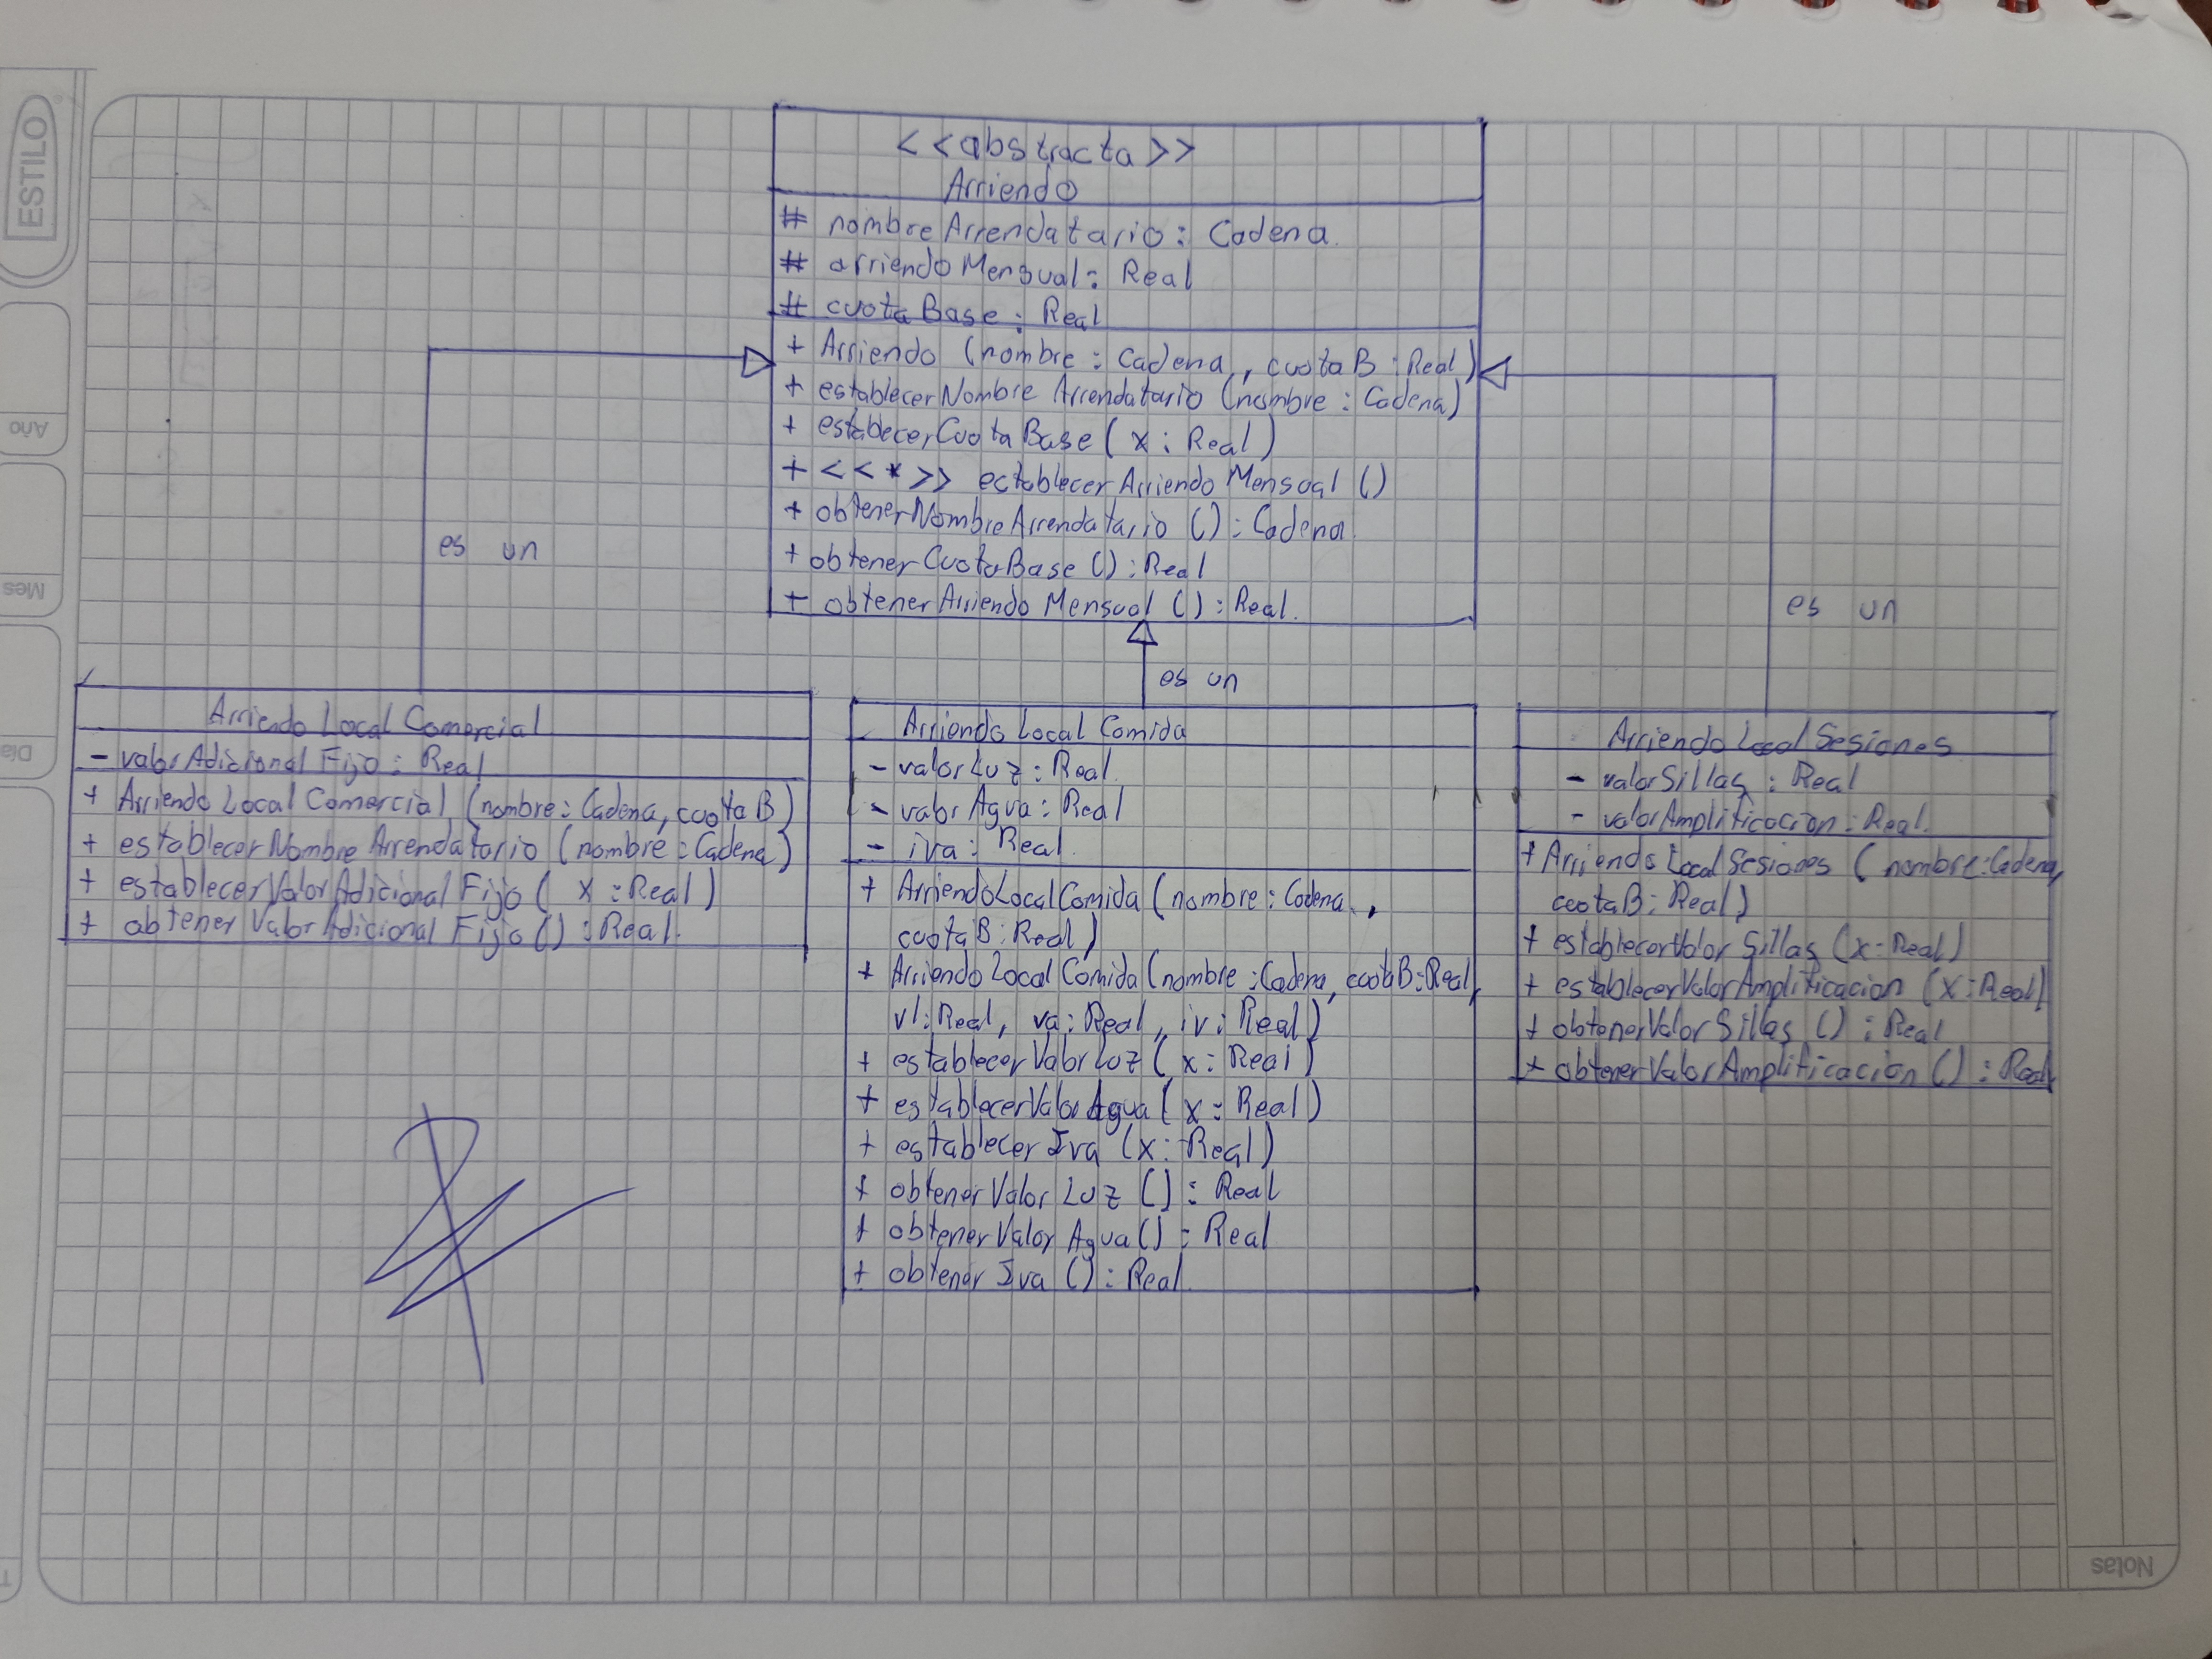 ESTILO
Año
Mes
Día
Notas
<<abstracta>>
Arriendo
# nombreArrendatario: Cadena.
# arriendoMensual: Real
# cuotaBase: Real
+ Arriendo (nombre: Cadena, cuotaB: Real)
+ establecerNombreArrendatario (nombre: Cadena)
+ establecerCuotaBase (x: Real)
+ <<*>> establecerArriendoMensual ()
+ obtenerNombreArrendatario (): Cadena.
+ obtenerCuotaBase (): Real
+ obtenerArriendoMensual (): Real.
es un
es un
es un
Arriendo Local Comercial
- valorAdicionalFijo: Real
+ ArriendoLocalComercial (nombre: Cadena, cuotaB)
+ establecerNombreArrendatario (nombre: Cadena)
+ establecerValorAdicionalFijo (x: Real)
+ obtenerValorAdicionalFijo (): Real.
Arriendo Local Comida
- valorLuz: Real.
- valorAgua: Real
- iva: Real.
+ ArriendoLocalComida (nombre: Cadena,
cuotaB: Real)
+ ArriendoLocalComida (nombre: Cadena, cuotaB: Real,
vl: Real, va: Real, iv: Real)
+ establecerValorLuz (x: Real)
+ establecerValorAgua (x: Real)
+ establecerIva (x: Real)
+ obtenerValorLuz (): Real
+ obtenerValorAgua (): Real
+ obtenerIva (): Real.
Arriendo Local Sesiones
- valorSillas: Real
- valorAmplificacion: Real.
+ ArriendoLocalSesiones (nombre: Cadena,
cuotaB: Real)
+ establecerValorSillas (x: Real)
+ establecerValorAmplificacion (x: Real)
+ obtenerValorSillas (): Real
+ obtenerValorAmplificacion (): Real